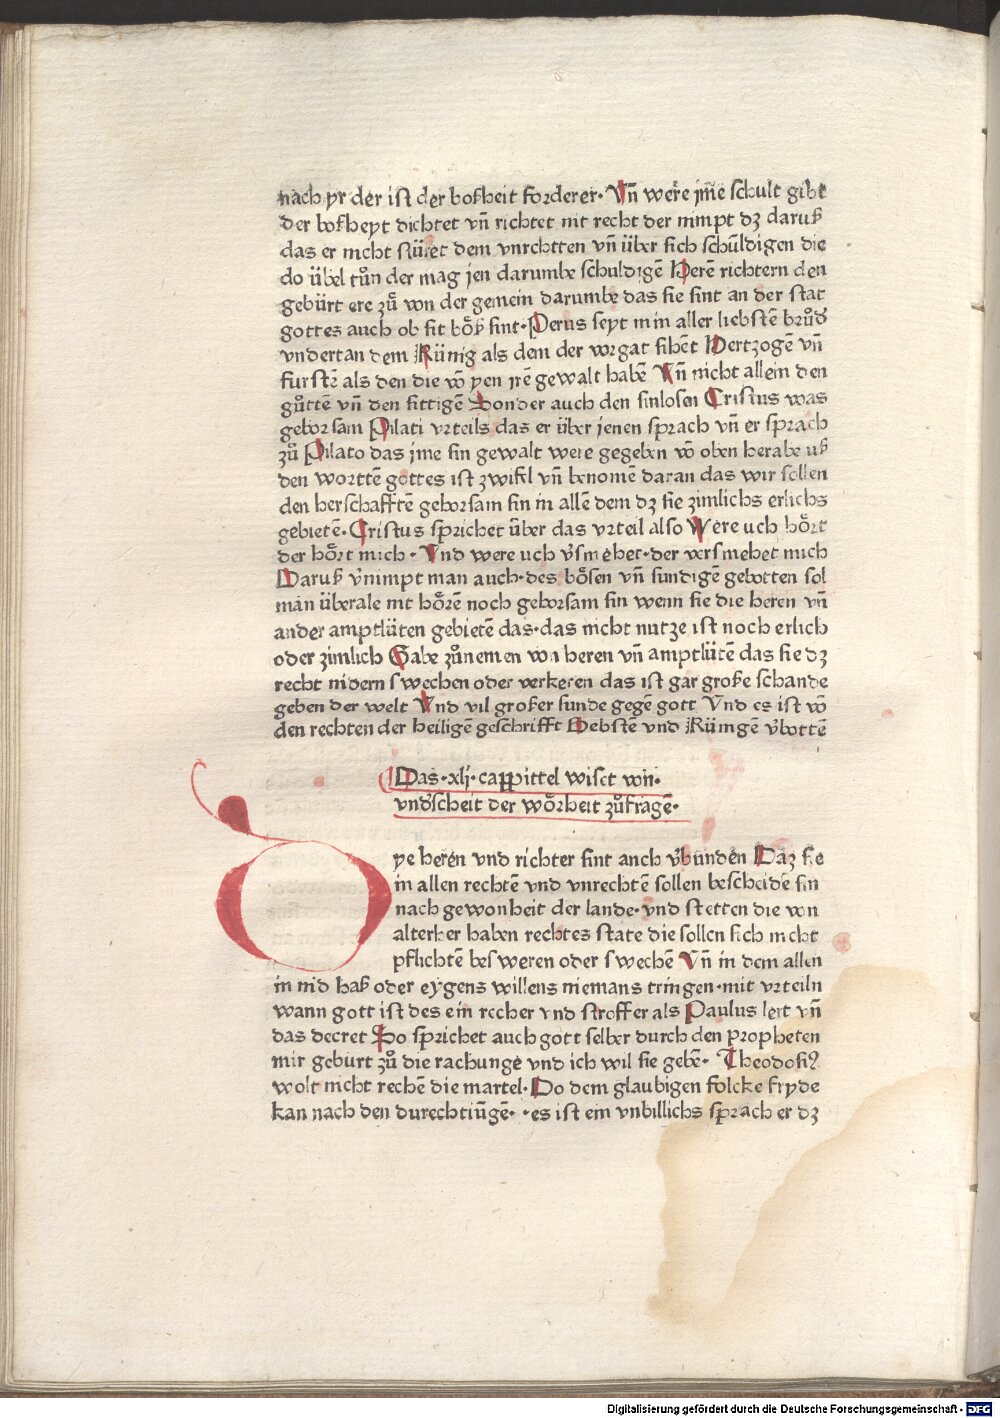 nach yr der ist der boßheit forderer· Vn̄ were̊ jm̄e schult gibt
der boßheyt dichtet vn̄ richtet nit recht der nimpt dʒ daruß
das er nicht stüret dem vnrchtten vn̄ über sich schüldigen die
do übel tůn der mag jen darumbe schuldigē Herē richtern den
gebürt ere zů von der gemein darumbe das sie sint an der stat
gottes auch ob sit bo̊ß sint· Petrus seyt min aller liebstē brůd̕
vndertan dem Künig als dem der vorgat sihēt Hertzogē vn̄
furstē als den die vō yen jrē gewalt habē Vn̄ nicht allein den
gůttē vn̄ den sittigē Sonder auch den sinlosen Cristus was
geborsam Pilati vrteils das er über jenen sprach vn̄ er sprach
zů Pilato das jme sin gewalt were gegeben vō oben herabe uß
den worttē gottes ist zwifel vn̄ benomē daran das wir sollen
den herschafftē geborsam sin in allē dem dʒ sie zimlichs erlichs
gebietē· Cristus sprichet über das vrteil also Were uch ho̊rt
der ho̊rt mich · Vnd were uch v̕smehet· der versmehet mich
Daruß v̕nimpt man auch· des bo̊sen vn̄ sundigē gebotten sol
man überale nit ho̊rē noch geborsam sin wenn sie die heren vn̄
ander amptlüten gebietē das· das nicht nutze ist noch erlich
oder zimlich Gabe zůnemen von heren vn̄ amptlütē das sie dʒ
recht nidern swechen oder verkeren das ist gar große schande
geben der welt Vnd vil großer sunde gegē gott Vnd es ist vō
den rechten der heiligē geschrifft Bebstē vnd Künigē v̕bottē
Das ·xlj· cappittel wiset von·
vnd̕scheit der wo̊rheit zůfragē·
Dye heren vnd richter sint auch v̕bunden Daz sie
in allen rechtē vnd vnrechtē sollen bescheidē sin
nach gewonheit der lande· vnd stetten die von
alterher haben rechtes state die sollen sich nicht
pflichtē besweren oder swechē Vn̄ in dem allen
in nid haß oder eygens willens niemans tringen· mit vrteiln
wann gott ist des ein recher vnd stroffer als Paulus lert vn̄
das decret So sprichet auch gott selber durch den propheten
mir geburt zů die rachunge vnd ich wil sie gebē· Theodosi⁹
wolt nicht rechē die martel· Do dem glaubigen folcke fryde
kan nach den durechtiūgē· ·es ist ein vnbillichs sprach er dʒ
Digitalisierung gefördert durch die Deutsche Forschungsgemeinschaft · DFG